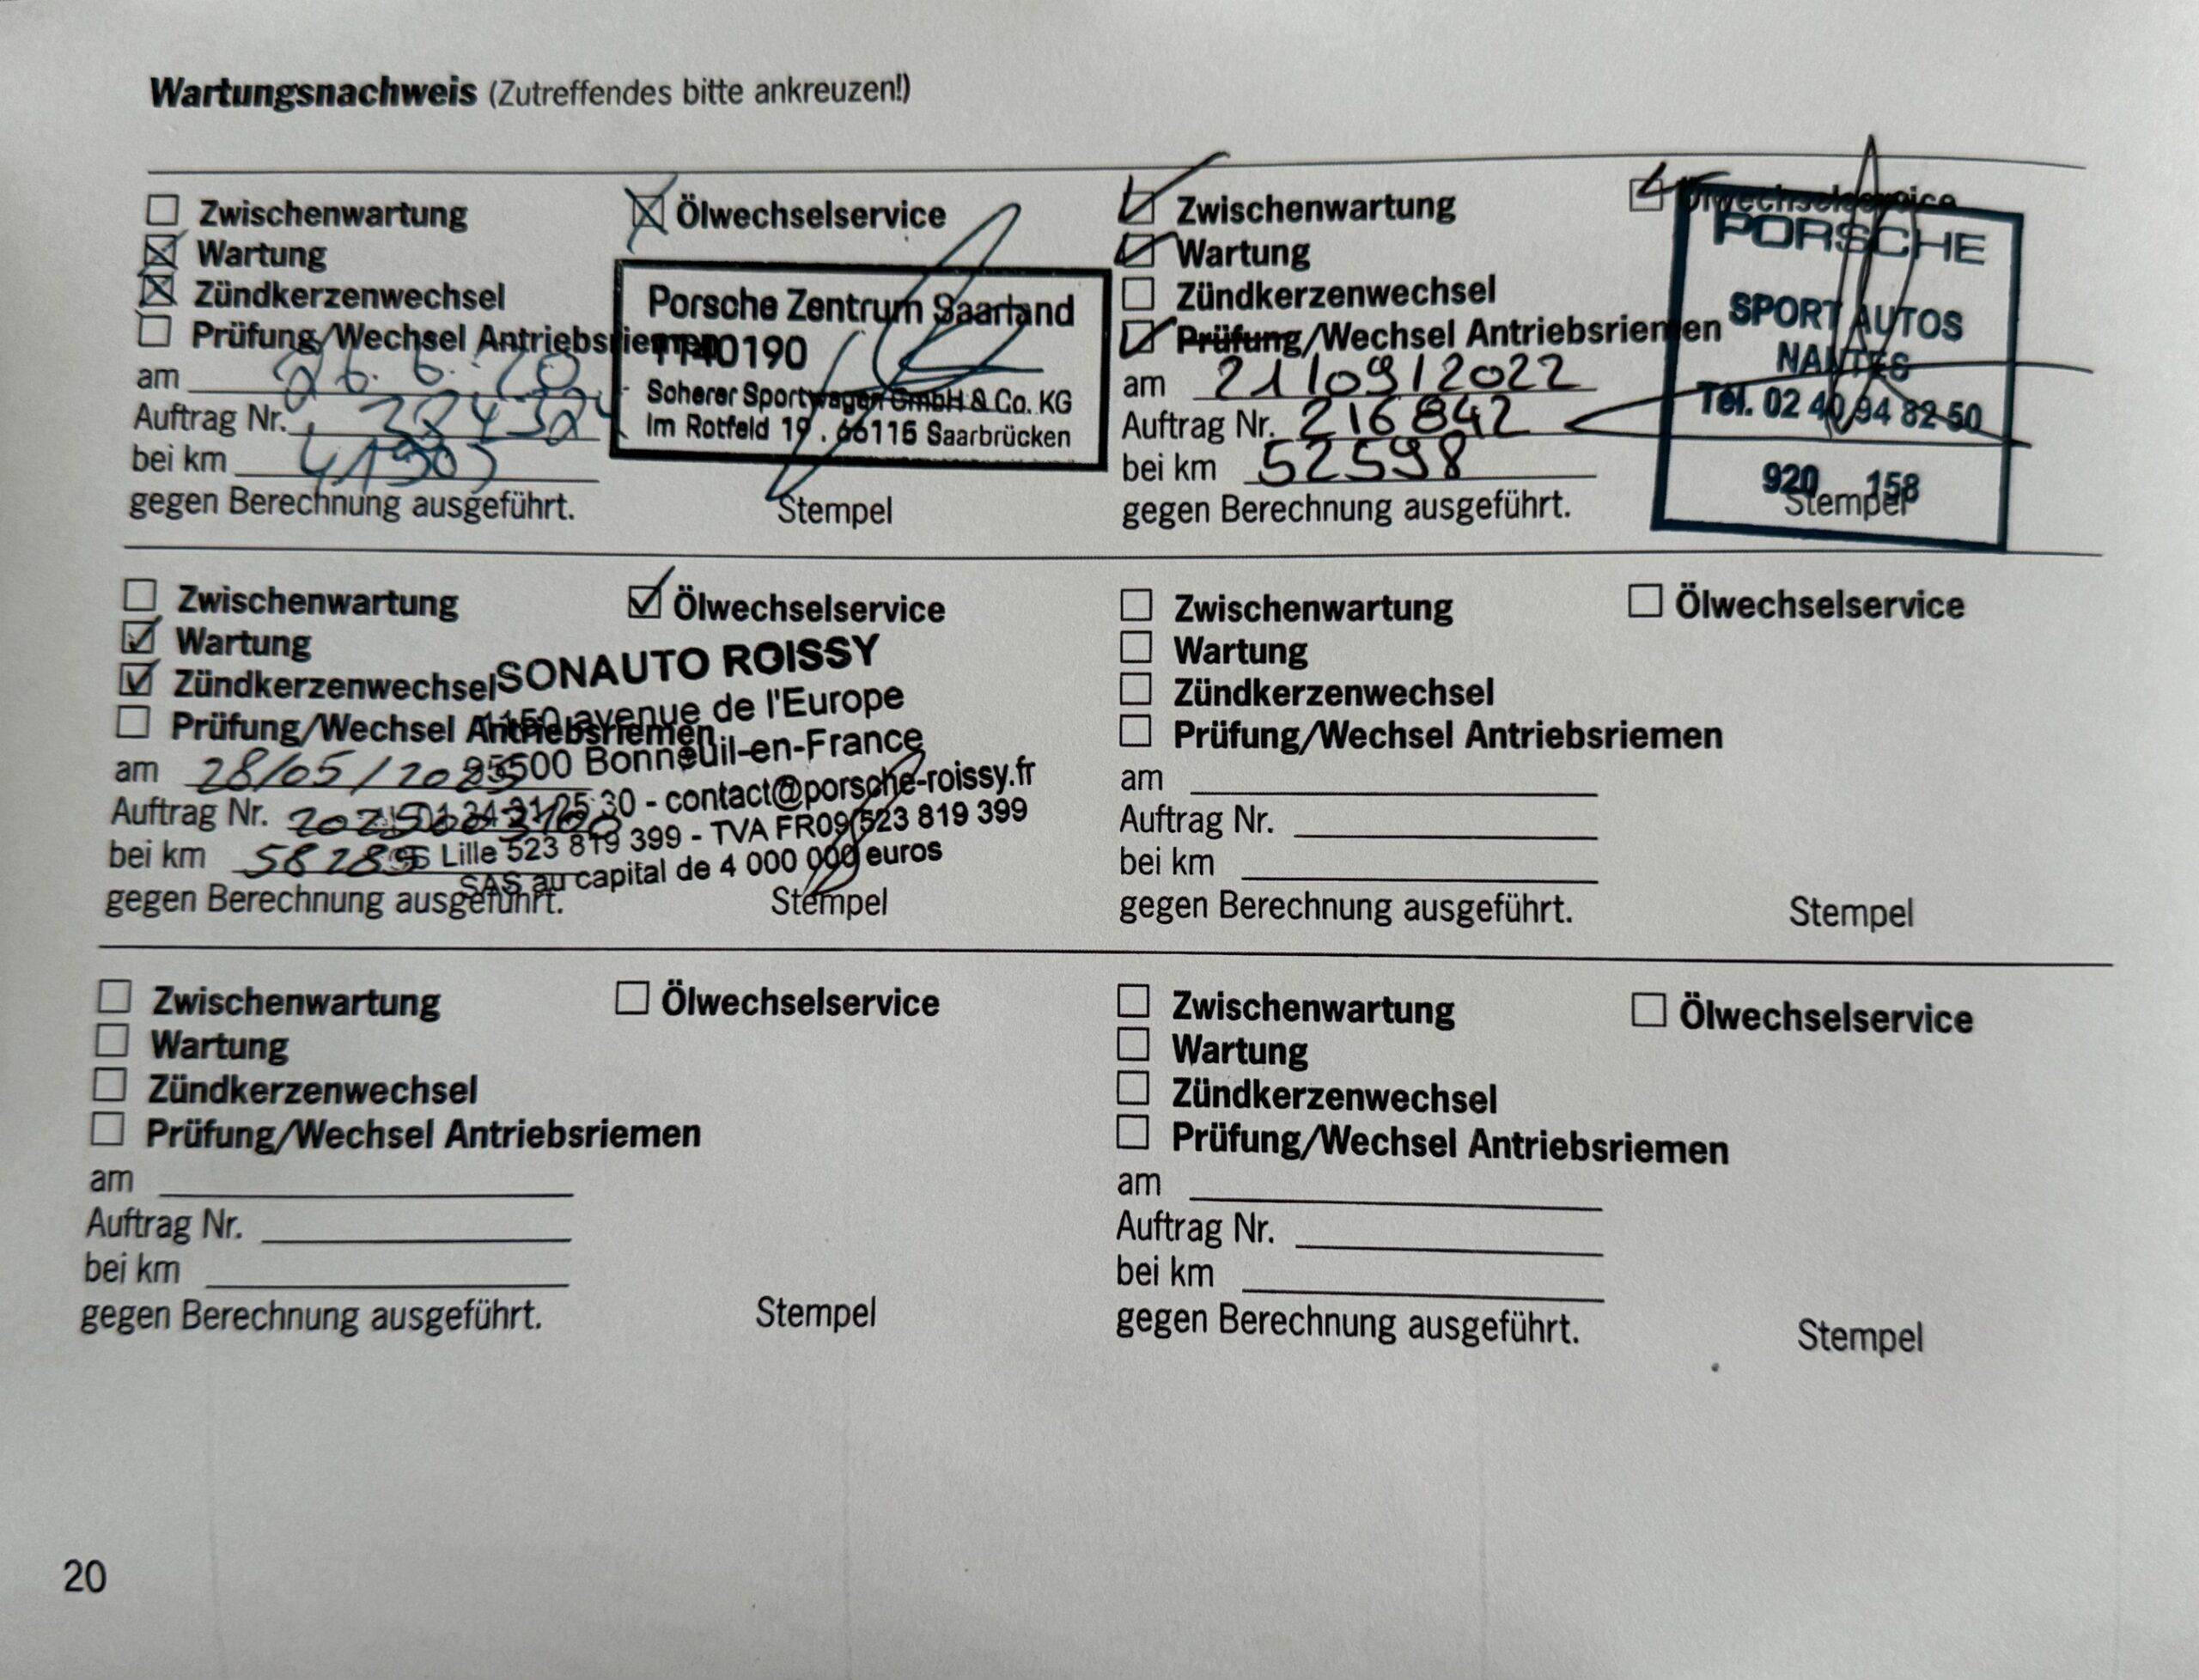 Wartungsnachweis (Zutreffendes bitte ankreuzen!)
Zwischenwartung
Ölwechselservice
Wartung
Zündkerzenwechsel
Prüfung/Wechsel Antriebsriemen
am 26.6.20
Auftrag Nr.
bei km
gegen Berechnung ausgeführt.
Porsche Zentrum Saarland
1140190
Scherer Sportwagen GmbH & Co. KG
Im Rotfeld 19 . 66115 Saarbrücken
Stempel
Zwischenwartung
Ölwechselservice
Wartung
Zündkerzenwechsel
Prüfung/Wechsel Antriebsriemen
am 21/09/2022
Auftrag Nr. 216842
bei km 52598
gegen Berechnung ausgeführt.
PORSCHE
SPORT AUTOS
NANTES
Tél. 02 40 94 82 50
920 158
Stempel
Zwischenwartung
Ölwechselservice
Wartung
Zündkerzenwechsel
Prüfung/Wechsel Antriebsriemen
am 28/05/2025
Auftrag Nr.
bei km
gegen Berechnung ausgeführt.
SONAUTO ROISSY
1150 avenue de l'Europe
95500 Bonneuil-en-France
30 - contact@porsche-roissy.fr
Lille 523 819 399 - TVA FR09 523 819 399
SAS au capital de 4 000 000 euros
Stempel
Zwischenwartung
Ölwechselservice
Wartung
Zündkerzenwechsel
Prüfung/Wechsel Antriebsriemen
am
Auftrag Nr.
bei km
gegen Berechnung ausgeführt.
Stempel
Zwischenwartung
Ölwechselservice
Wartung
Zündkerzenwechsel
Prüfung/Wechsel Antriebsriemen
am
Auftrag Nr.
bei km
gegen Berechnung ausgeführt.
Stempel
Zwischenwartung
Ölwechselservice
Wartung
Zündkerzenwechsel
Prüfung/Wechsel Antriebsriemen
am
Auftrag Nr.
bei km
gegen Berechnung ausgeführt.
Stempel
20